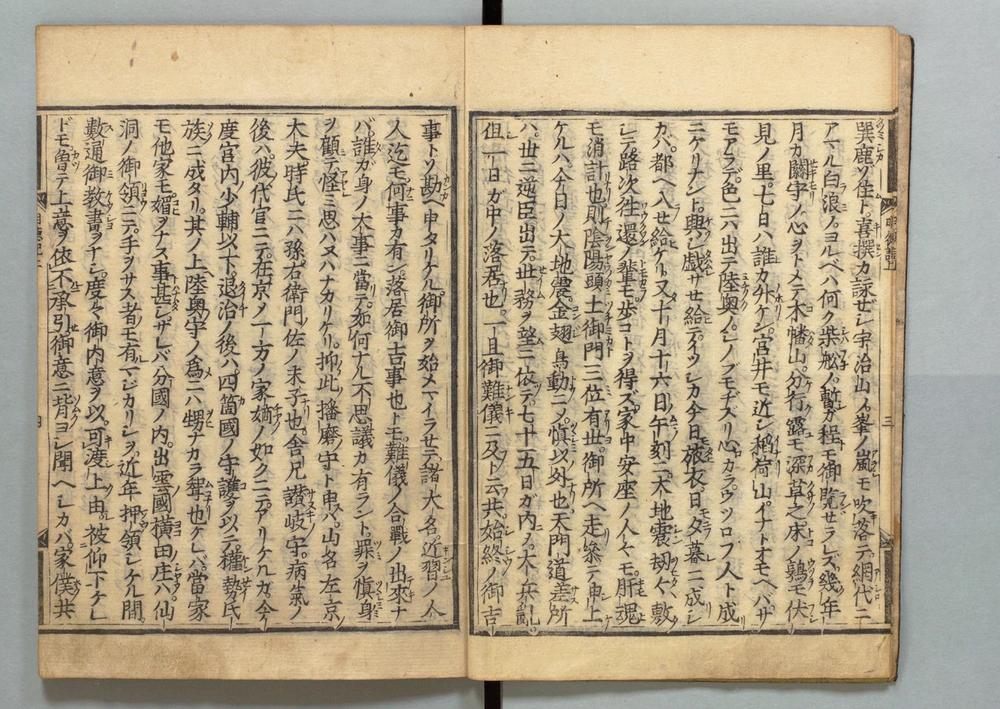 巽鹿ソ住ト喜撰カ詠ゼシ宇治山ノ峯ノ嵐モ吹落テ網代ニ
アマル白浪ノヨルベハ何ク柴舩ノ暫カ程モ御覧セラレズ幾年
月カ關守ノ心ヲトメテ木幡山分行露モ深草之床ノ鶉モ伏
見ノ里七日ハ誰カ外ケン宮井モ近シ稻荷山イナトオモヘバサ
モアラデ色ニハ出テ陸奥ノシノブモヂスリ心カラウツロフ人ト成
ニケリナント興シ戯サセ給テイツシカ今日モ旅衣日モ夕暮ニ成シ
カバ都ヘ入セ給ケト又十月十六日午刻ニ大地震劫々敷
シテ路次往還ノ輩モ歩コトヲ得ズ家中安座ノ人々モ肝魂
モ消計也則陰陽頭土御門三位有世御所ヘ走參テ申上
ケルハ今日ノ大地震金翅鳥動ニメ愼以外也天門道差所
ハ世ニ逆臣出テ世務ヲ望ニ依テ七十五日ガ内ノ大兵亂
但一日ガ中ノ落居也一旦御難儀ニ及ト云共始終ノ御吉
事トソ勘ヘ申タリケル御所ヲ始メマイラせテ諸大名近習ノ人
人迄モ何事カ有ン落居御吉事也トモ難儀ノ合戰ノ出來ナ
バ誰カ身ノ大事ニ當テ如何ナル不思議カ有ラント罪ヲ愼身
ヲ顧テ怪ミ思ハヌハナカリケリ抑此播磨守ト申ハ山名左京
大夫時氏ニハ孫右衛門佐ノ末子也舎兄讃岐守病氣ノ
後ハ彼代官ニテ在京ノ一方ノ家嫡ノ如クニテアリケルカ今
度宮内少輔以下退治ノ後ハ四箇國ノ守護ヲ以テ權勢氏
族ニ成タリ其ノ上陸奥守ノ爲ニハ甥ナカラ聟也ケレバ當家
モ他家モ媚ヲナス事甚シサレバ分國ノ内出雲國横田庄ハ仙
洞ノ御領ニテ手ヲサス者モ有マジカリシヲ近年押領シケル間
數通御教書ヲナシ度々御内意ヲ以可渡上由被仰下ケレ
ドモ曽テ上意ヲ依不承引御意ニ背ヨシ聞ヘシカバ家僕共
三
四